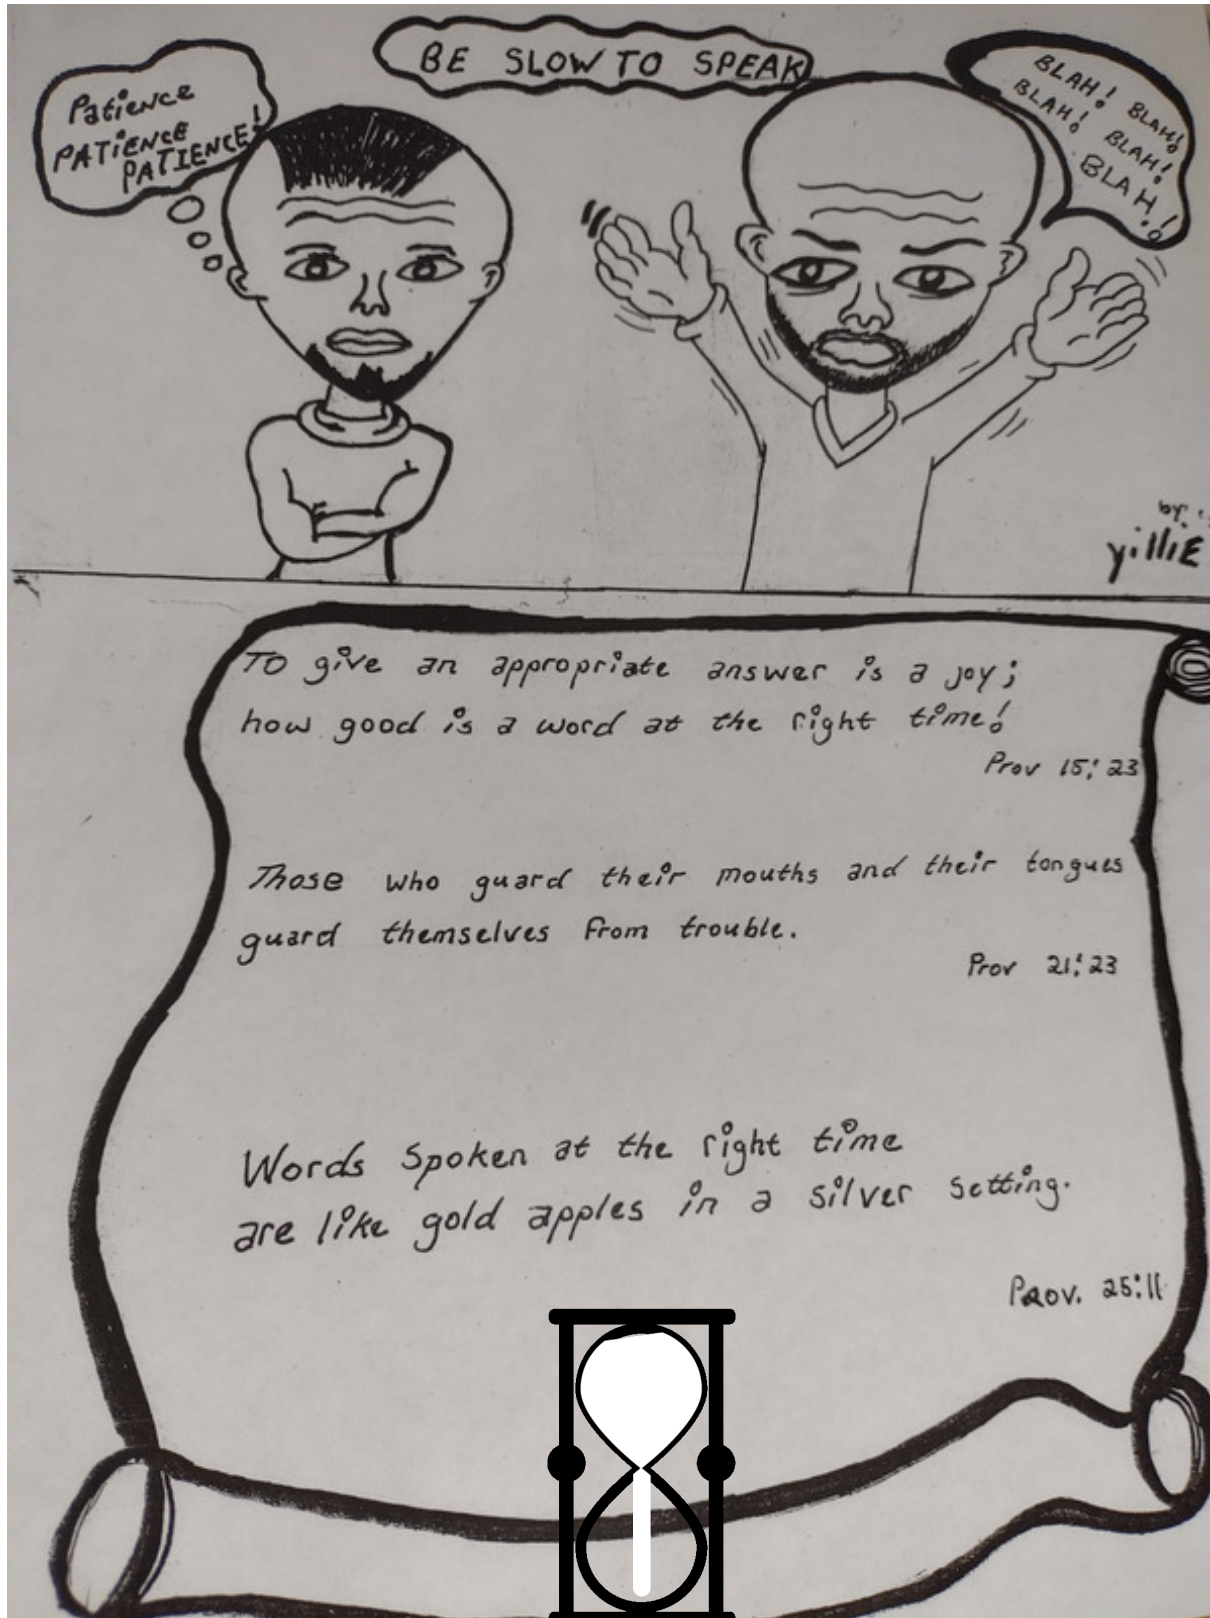 BE SLOW TO SPEAK
Patience
PATiENCE
PATIENCE!
BLAH! BLAH!
BLAH! BLAH!
BLAH!
by:
yilliE
To give an appropriate answer is a joy;
how good is a word at the right time!
Prov 15:23
Those who guard their mouths and their tongues
guard themselves from trouble.
Prov 21:23
Words spoken at the right time
are like gold apples in a silver setting.
Prov. 25:11